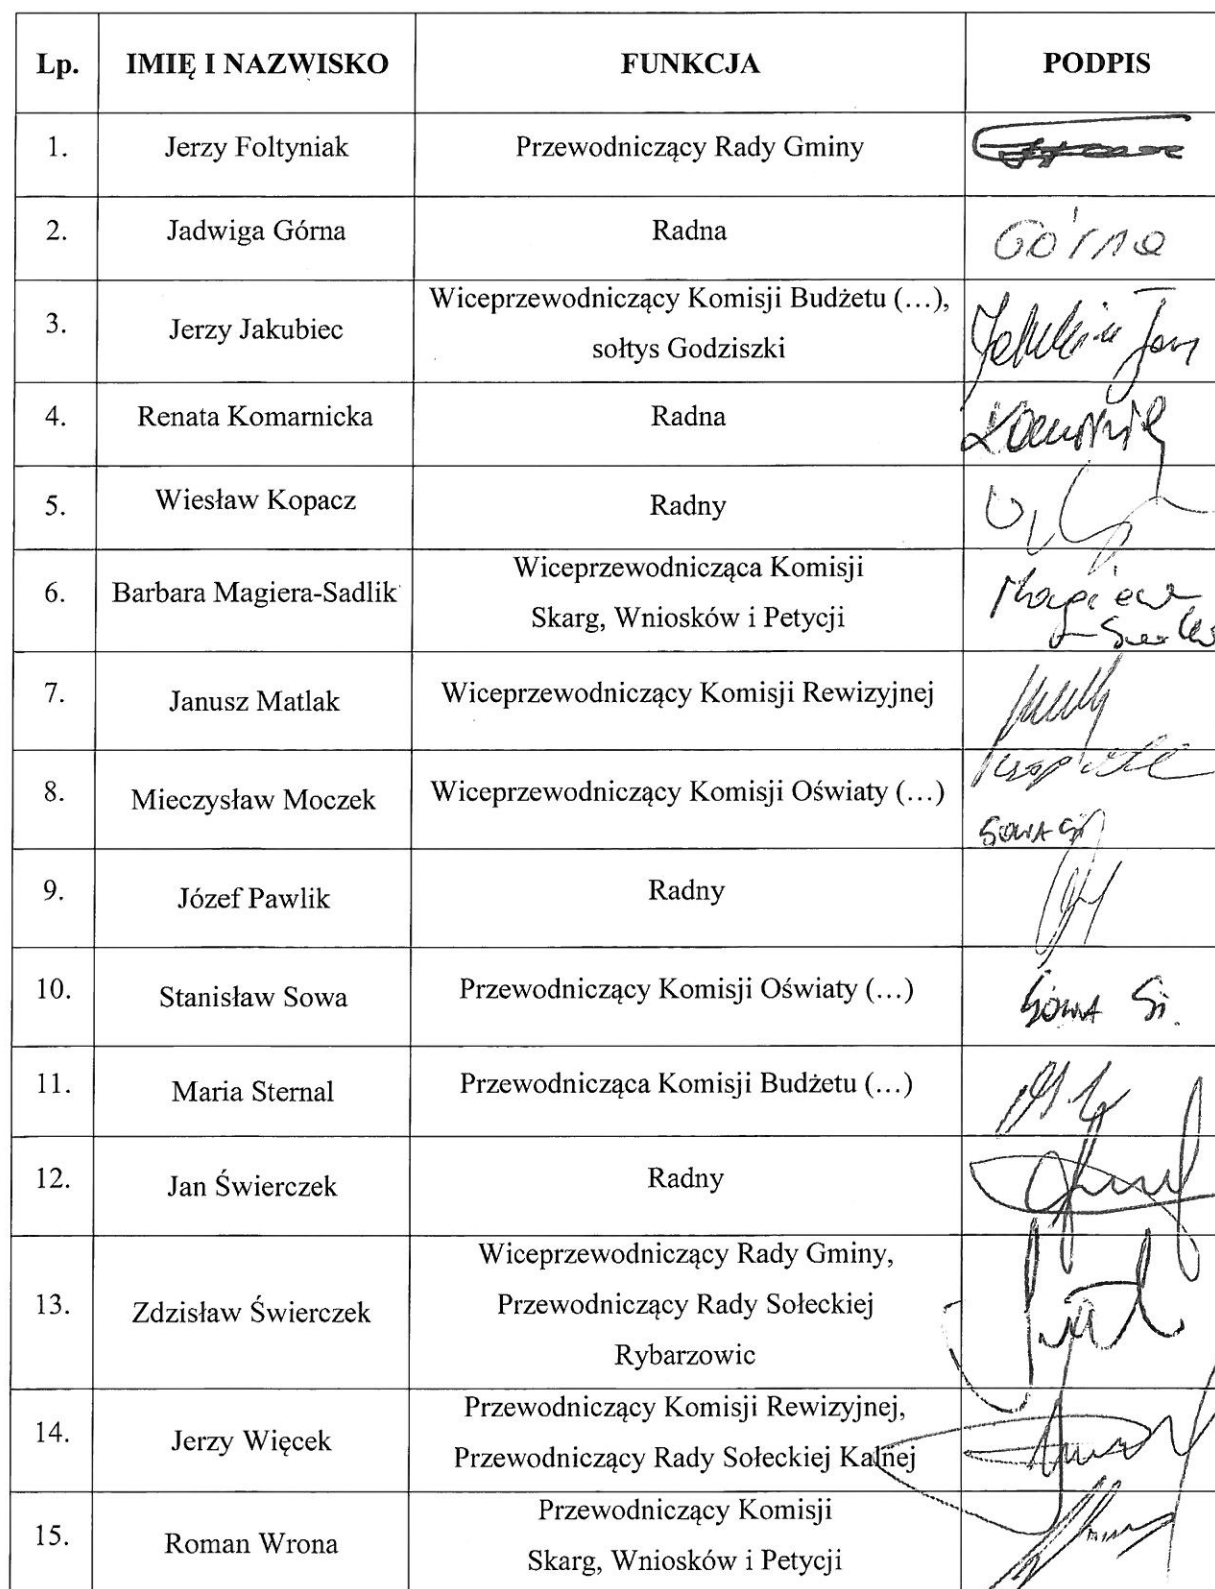 Lp. IMIĘ I NAZWISKO FUNKCJA PODPIS
1. Jerzy Foltyniak Przewodniczący Rady Gminy
2. Jadwiga Górna Radna Górna
3. Jerzy Jakubiec Wiceprzewodniczący Komisji Budżetu (…),
sołtys Godziszki
4. Renata Komarnicka Radna
5. Wiesław Kopacz Radny
6. Barbara Magiera-Sadlik Wiceprzewodnicząca Komisji Magiera
Skarg, Wniosków i Petycji
7. Janusz Matlak Wiceprzewodniczący Komisji Rewizyjnej
8. Mieczysław Moczek Wiceprzewodniczący Komisji Oświaty (…)
SOWA
9. Józef Pawlik Radny
10. Stanisław Sowa Przewodniczący Komisji Oświaty (…) SOWA
11. Maria Sternal Przewodnicząca Komisji Budżetu (…)
12. Jan Świerczek Radny
13. Zdzisław Świerczek Wiceprzewodniczący Rady Gminy,
Przewodniczący Rady Sołeckiej
Rybarzowic
14. Jerzy Więcek Przewodniczący Komisji Rewizyjnej,
Przewodniczący Rady Sołeckiej Kalnej
15. Roman Wrona Przewodniczący Komisji
Skarg, Wniosków i Petycji